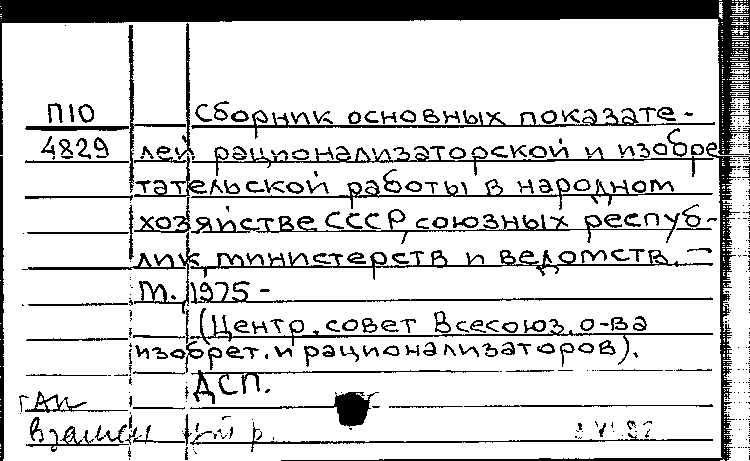 П10 Сборник основных показате-
4829 лей рационализаторской и изобре
тательской работы в народном
хозяйстве СССР, союзных респуб-
лик, министерств и ведомств. –
М., 1975 -
(Центр. совет Всесоюз. о-ва
изобрет. и рационализаторов).
ДСП.
Взамен